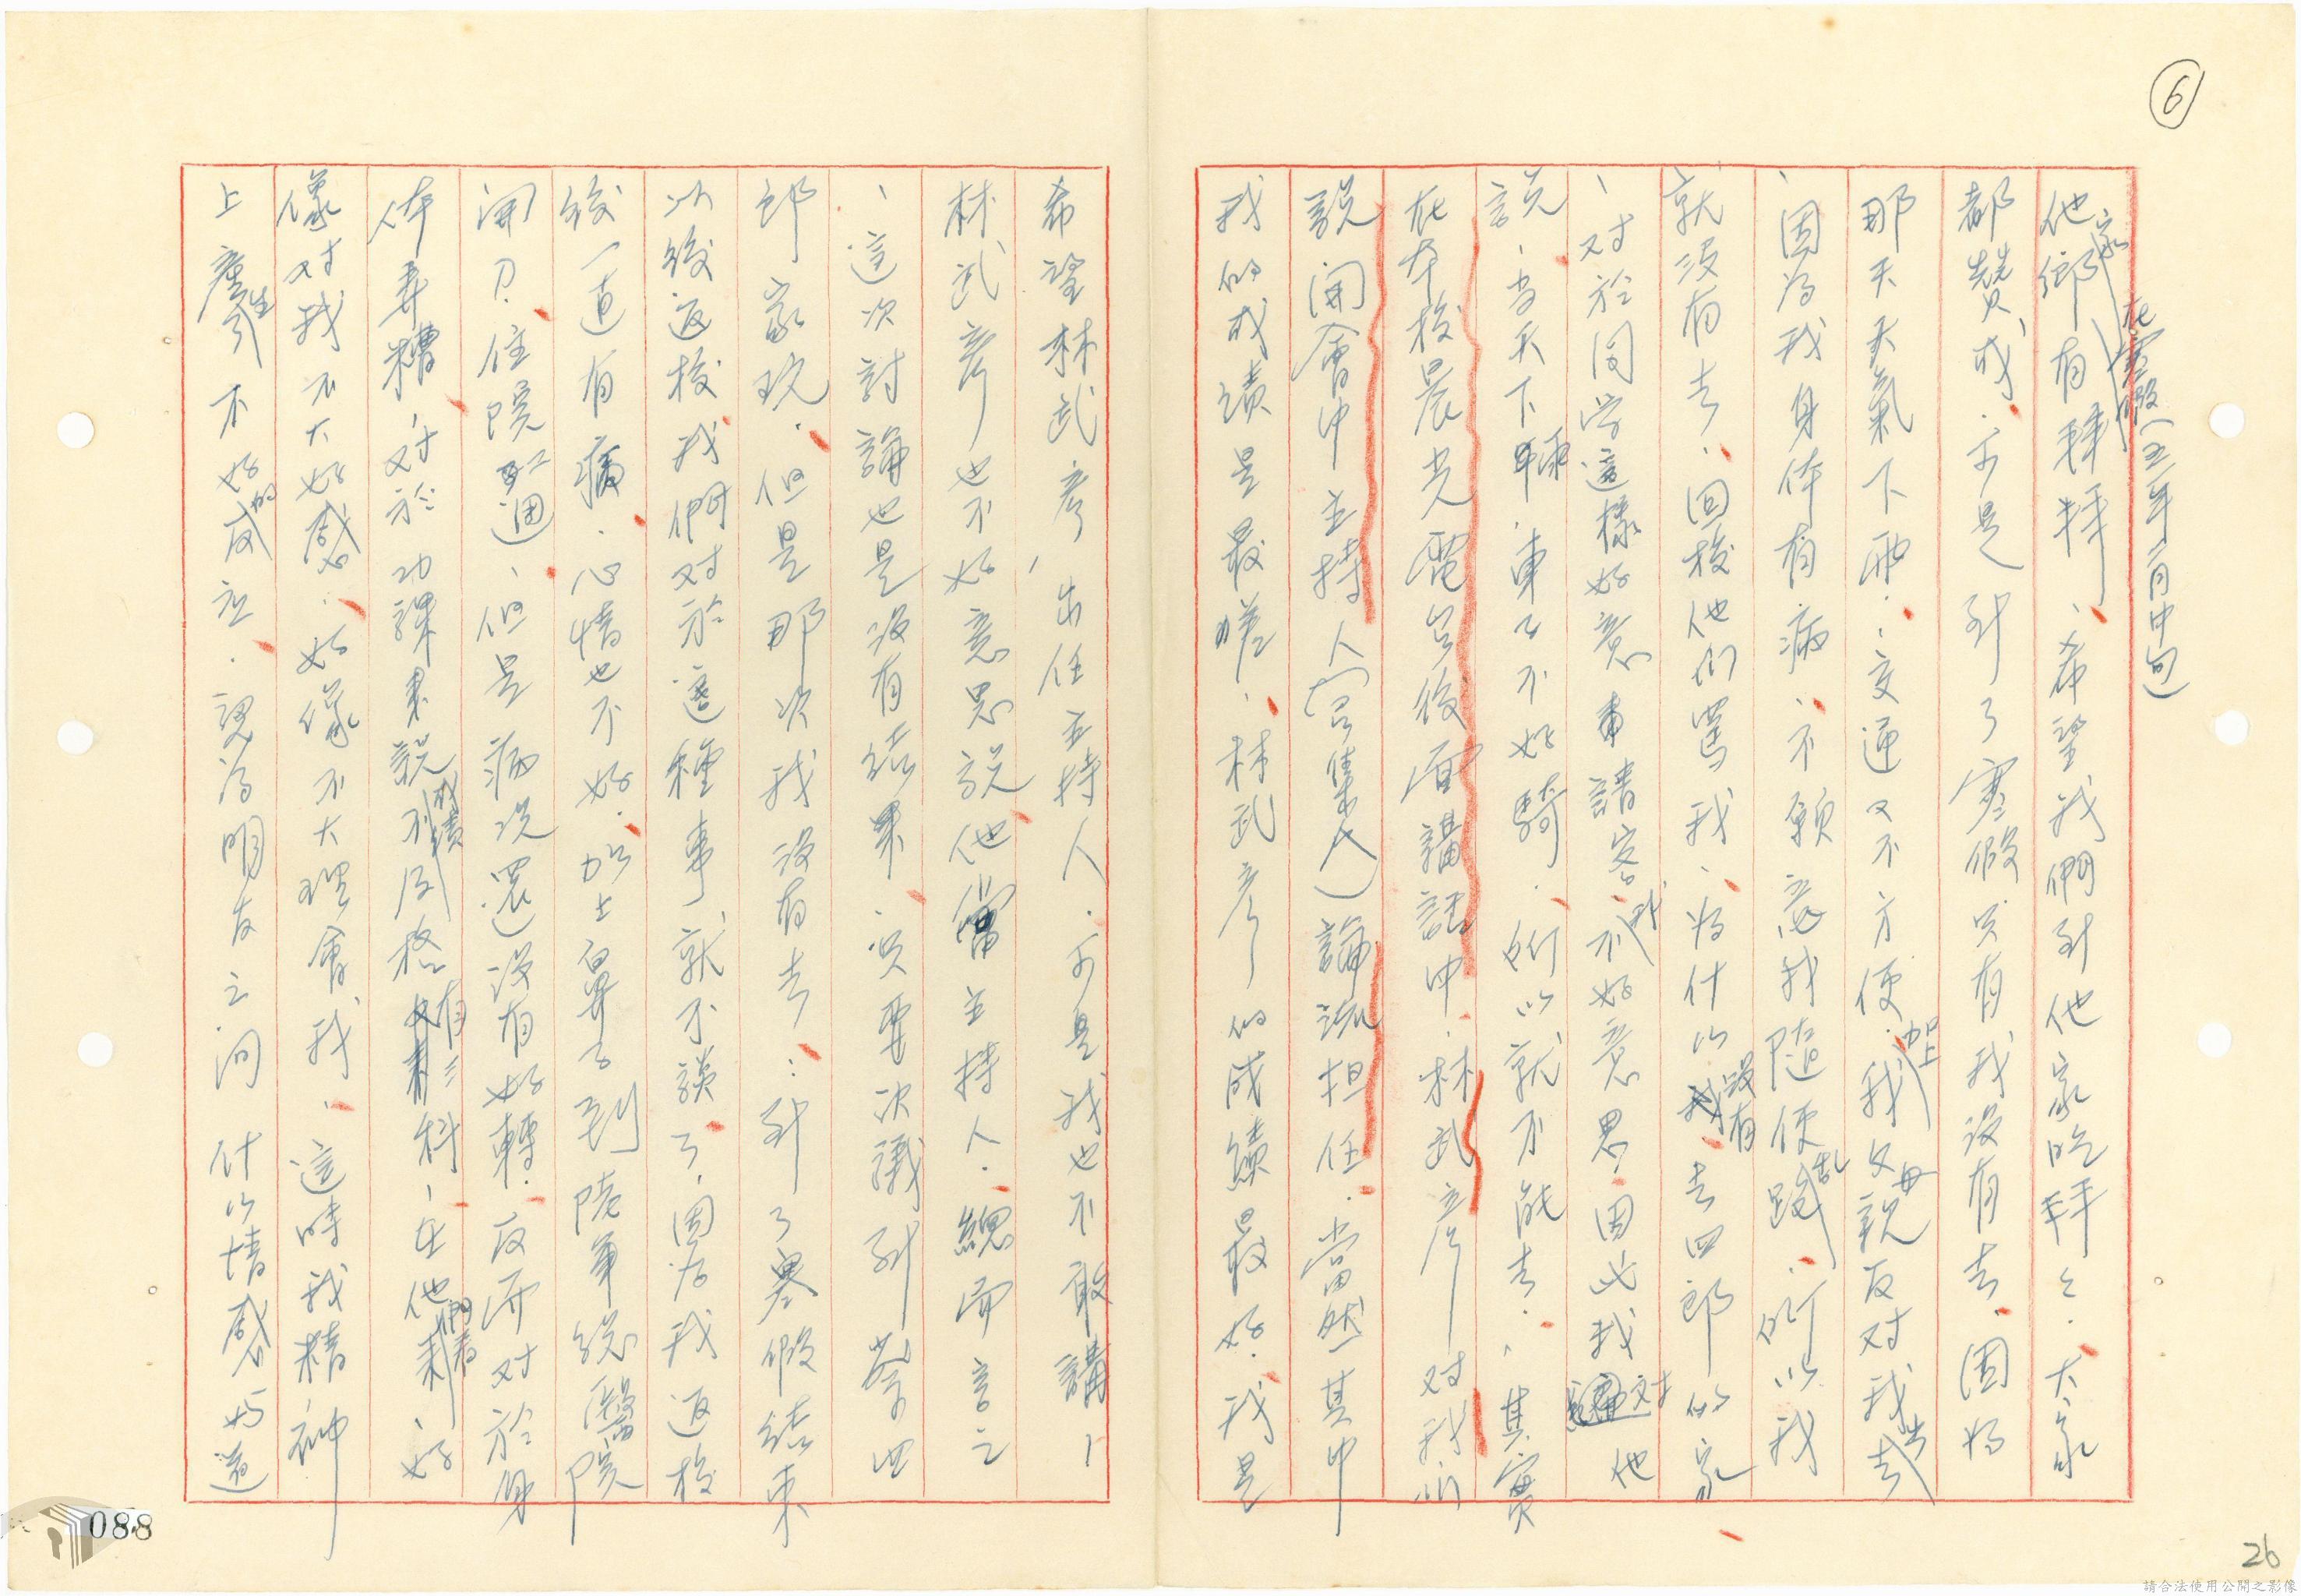 ⑥
在寒假(五一年二月中旬)
他家鄉有拜拜、希望我們到他家吃拜々.大家
都贊成.可是到了寒假只有我沒有去.因為
那天天氣下雨.交通又不方便.加上我父母親反对我出去
、因為我身体有病、不願意我隨便亂跑.所以我
就沒有去.回校他們罵我、為什以沒有去四郎的家
、对於同学這樣好意請客我不好意思.因此我对他
說、当天下雨.車子不好騎.所以就不能去.其實
在本校晨光電台後面講話中.林武彥对我們
說開會中主持人(召集人)論流担任.當然其中
我的成績是最差.林武彥的成績最好.我是
希望林武彥、出任主持人.可是我也不敢講、
林武彥也不好意思說他當主持人.總而言之
、這次討論也是沒有結果.只要次議到蔡四
郎家玩.但是那次我沒有去..到了寒假結束
以後返校我們对於這種事就不談了.因為我返校
後一直有病.心情也不好.加上鼻子到陸軍總醫院
開刀.住院週、但是病況還沒有好轉.反而对於身
体弄糟,对於功課來說成績不及格有三科、在他們看來、好
像对我不大好感.好像不大理會我、這時我精神
上產生不好的反应.認為朋友之间什以情感好這
088
26
請合法使用公開之影像